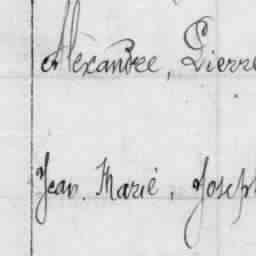 Alexandre, Pierre
Jean. Marie, Joseph